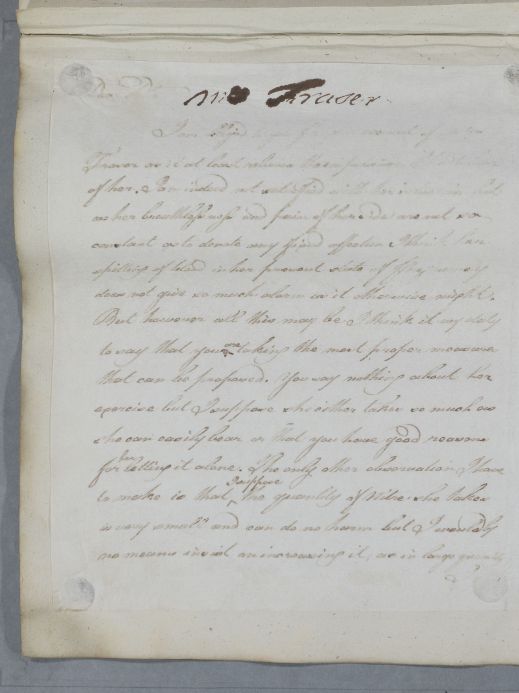 Mrs Fraser
Dear
I am
Fraser as it at least relieves the
of her. I am indeed not satisfied with her
as her breathlessness and pain of her side are not so
constant as to denote any fixed affection & think her
spitting of blood in her present state of pregnancy
does not give so much alarm as it otherwise might.
But however all this may be I think it my duty
to say that you are taking the most proper measures
that can be proposed. You say nothing about her
exercise but I suppose she either takes as much as
she can easily bear or that you have good reasons
for letting it alone. The only other observation I have
to make is that I suppose the quantity of Nitre she takes
is very small and can do no harm but I would by
no means insist on increasing it, as in large